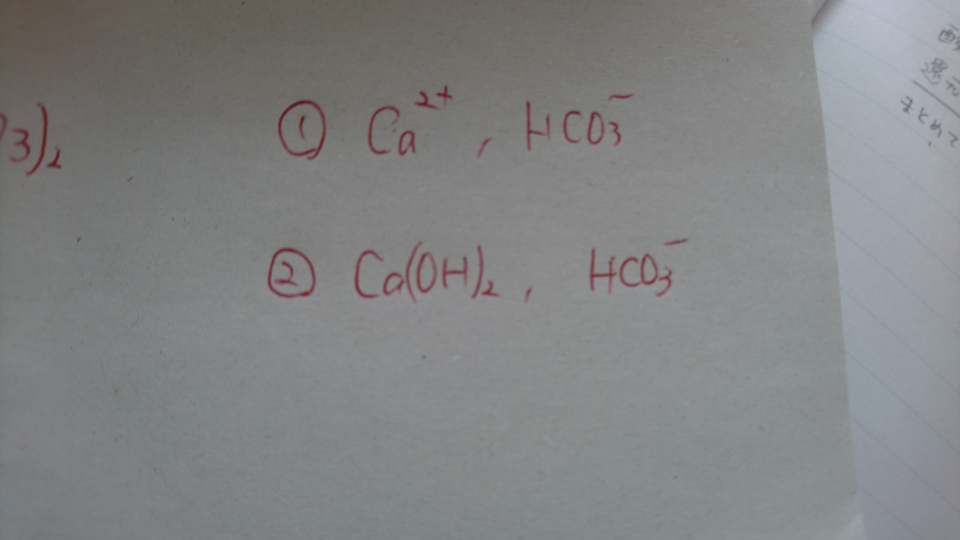 3)₂
① Ca²⁺, HCO₃⁻
② Ca(OH)₂, HCO₃⁻
還元
まとめて